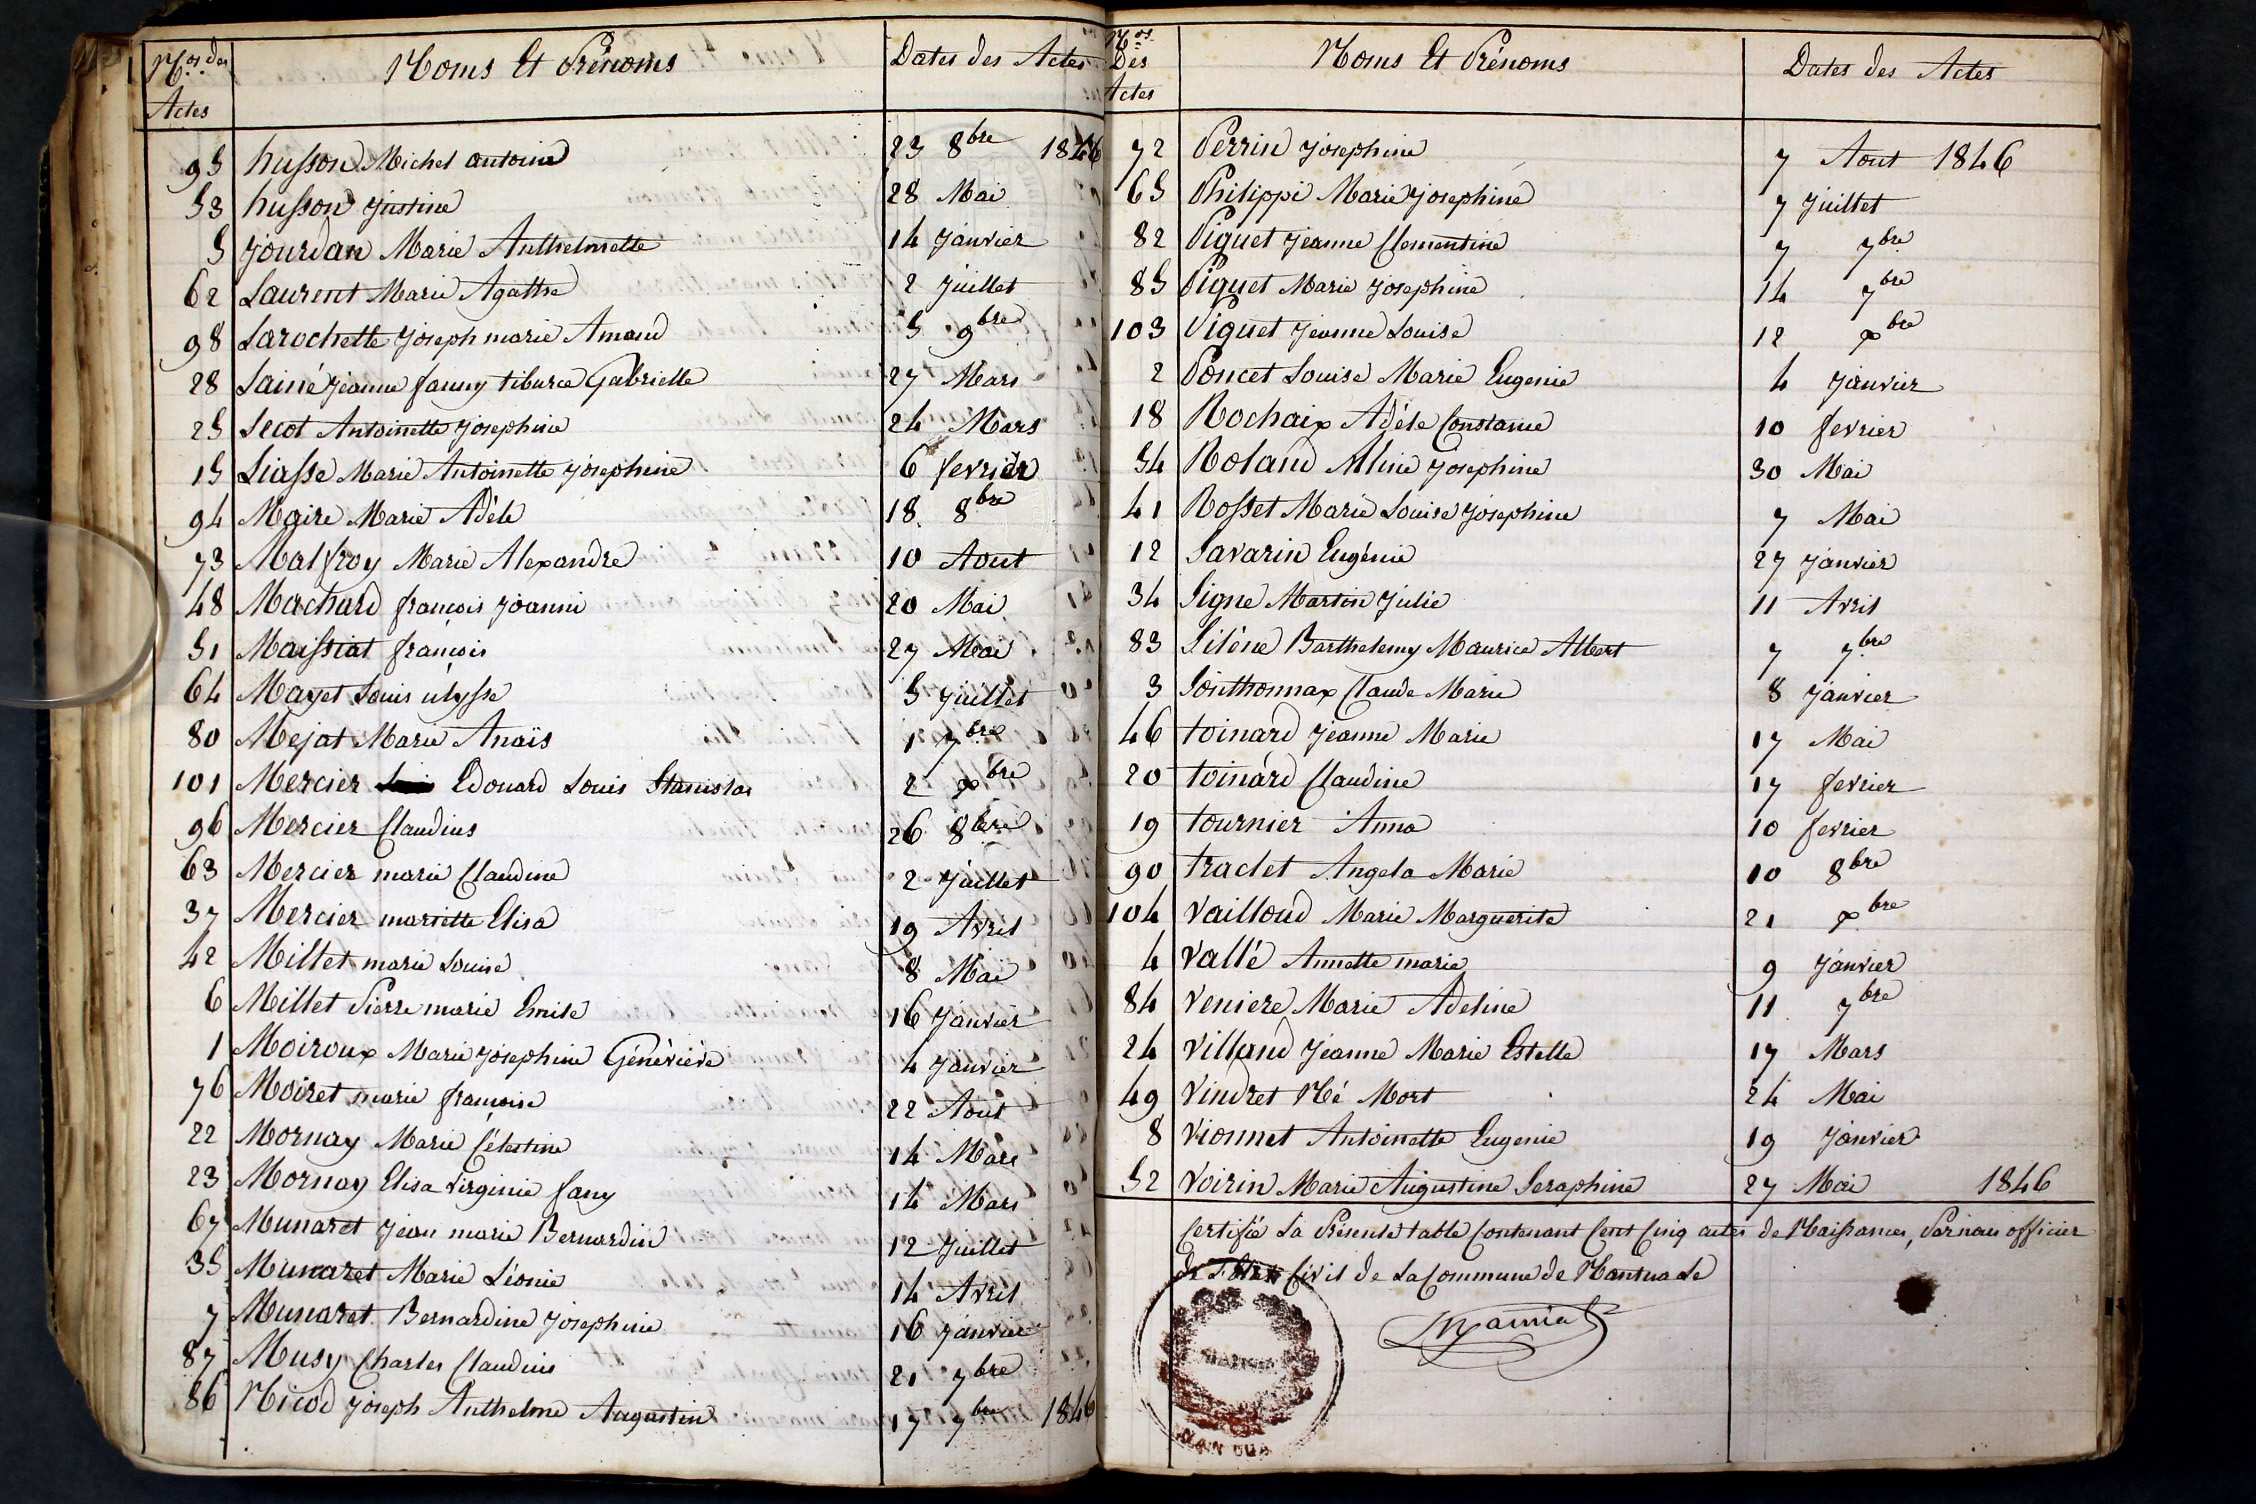 Nos des Actes Noms Et Prénoms Dates des Actes
95 husson Michel antoine 23 8bre 1846
53 husson justine 28 Mai
5 jourdan Marie Anthelmette 14 janvier
62 Laurent Marie Agathe 2 juillet
98 Larochette joseph marie Amand 5 9bre
28 Lainé jeanne fanny tiburce Gabrielle 27 Mars
25 Lecot Antoinette josephine 24 Mars
15 Liasse Marie Antoinette josephine 6 fevrier
94 Maire Marie Adèle 18 8bre
73 Malfroy Marie Alexandre 10 Aout
48 Machard françois joanni 20 Mai
51 Maissiat françois 27 Mai
64 Mayet Louis ulysse 5 juillet
80 Mejat Marie Anaïs 1 7bre
101 Mercier Edouard Louis Stanislas 2 xbre
96 Mercier Claudius 26 8bre
63 Mercier marie Claudine 2 juillet
37 Mercier mariette Elisa 19 Avril
42 Millet marie Louise 8 Mai
6 Millet Pierre marie Emile 16 janvier
1 Moiroux Marie josephine Généviève 4 janvier
76 Moiret marie francoise 22 Aout
22 Mornay Marie Célestine 14 Mars
23 Mornay Elisa virginie fany 14 Mars
67 Munaret jean marie Bernardin 12 juillet
35 Munaret Marie Léonie 14 Avril
7 Munaret Bernardine josephine 16 janvier
87 Musy Charles Claudius 21 7bre
86 Nicod joseph Anthelme Augustin 17 7bre 1846
Nos Des Actes Noms Et Prénoms Dates des Actes
72 Perrin josephine 7 Aout 1846
65 Philippi Marie josephine 7 juillet
82 Piquet jeanne Clementine 7 7bre
85 Piquet Marie josephine 14 7bre
103 Piquet jeanne Louise 12 xbre
2 Poncet Louise Marie Eugenie 4 janvier
18 Rochaix Adéle Constance 10 fevrier
54 Roland Aline josephine 30 Mai
41 Rosset Marie Louise josephine 7 Mai
12 Savarin Eugénie 27 janvier
34 Signe Martin julie 11 Avril
83 Silène Barthelemy Maurice Albert 7 7bre
3 Sonthonnax Claude Marie 8 janvier
46 toinard jeanne Marie 17 Mai
20 toinard Claudine 17 fevrier
19 tournier Anna 10 fevrier
90 traclet Angela Marie 10 8bre
104 vailloud Marie Marguerite 21 xbre
4 vallé Annette marie 9 janvier
84 veniere Marie Adeline 11 7bre
24 villand jeanne Marie Estelle 17 Mars
49 vindret Né Mort 24 Mai
8 vionnet Antoinette Eugenie 19 janvier
52 voirin Marie Augustine Seraphine 27 Mai 1846
Certifié La Présente table Contenant Cent Cinq actes de Naissances, Par nous officier
de l'Etat Civil de La Commune de Nantua Le